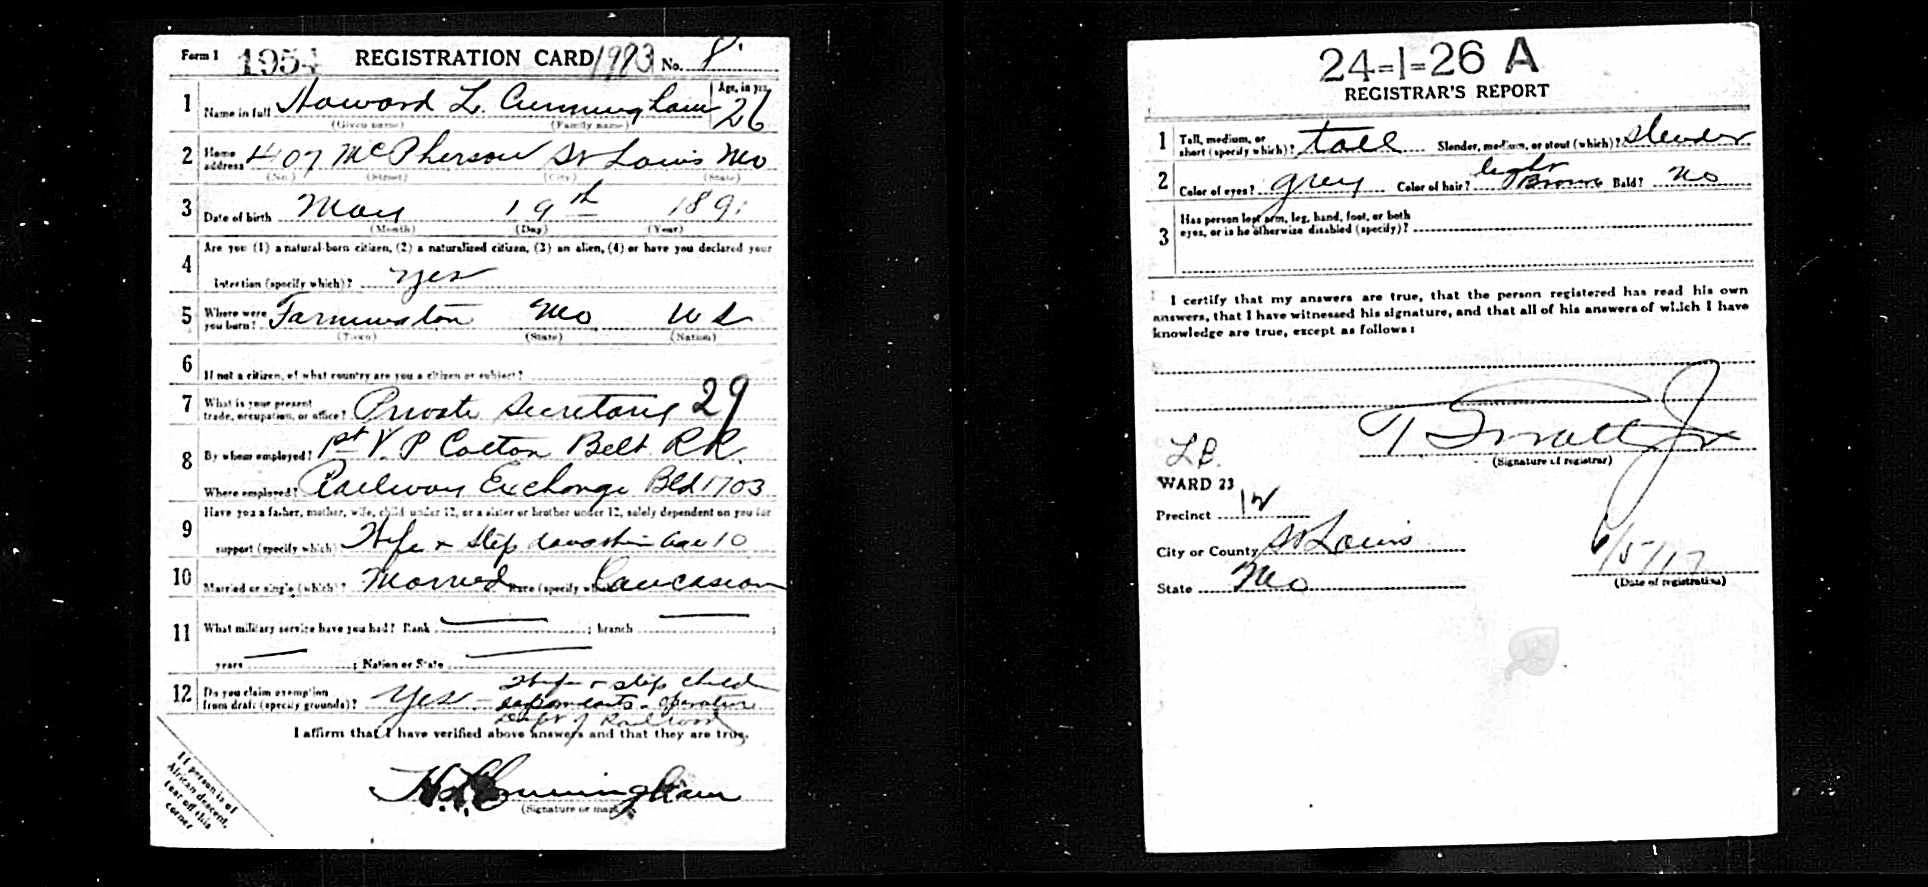 Form 1 1954 REGISTRATION CARD 1983 No. 8
1 Name in full Howard L. Cunningham Age, in yrs. 26
(Given name) (Family name)
2 Home address 407 McPherson St Louis Mo
(No.) (Street) (City) (State)
3 Date of birth May 19th 1891
(Month) (Day) (Year)
4 Are you (1) a natural-born citizen, (2) a naturalized citizen, (3) an alien, (4) or have you declared your
intention (specify which)? yes
5 Where were you born? Farmington Mo U S
(Town) (State) (Nation)
6 If not a citizen, of what country are you a citizen or subject?
7 What is your present trade, occupation, or office? Private Secretary 29
8 By whom employed? 1st V. P Cotton Belt RR.
Where employed? Railway Exchange Bld 1703
9 Have you a father, mother, wife, child under 12, or a sister or brother under 12, solely dependent on you for
support (specify which) Wife & step daughter age 10
10 Married or single (which)? Married Race (specify which) Caucasian
11 What military service have you had? Rank ; branch ;
years ; Nation or State
12 Do you claim exemption from draft (specify grounds)? Yes - Wife & step child
dependents - operative
Dept of Railroad
I affirm that I have verified above answers and that they are true.
H. L. Cunningham
(Signature or mark)
If person is of
African descent,
tear off this
corner
24-1-26 A
REGISTRAR'S REPORT
1 Tall, medium, or short (specify which)? tall Slender, medium, or stout (which)? slender
2 Color of eyes? grey Color of hair? light Brown Bald? No
3 Has person lost arm, leg, hand, foot, or both
eyes, or is he otherwise disabled (specify)?
I certify that my answers are true, that the person registered has read his own
answers, that I have witnessed his signature, and that all of his answers of which I have
knowledge are true, except as follows:
(Signature of registrar)
WARD 23
Precinct 12
City or County St Louis
6/5/17
(Date of registration)
State Mo